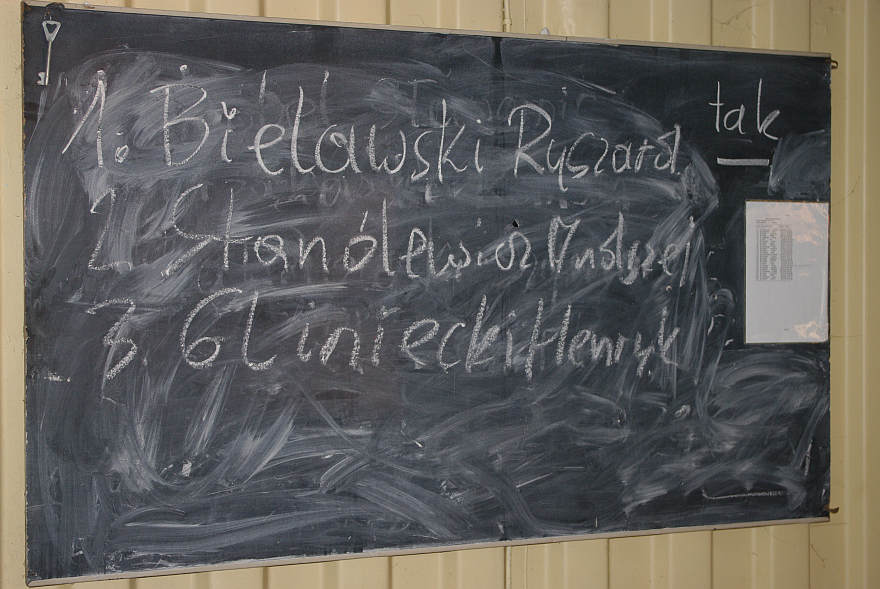 1. Bielawski Ryszard tak
2. Stanólewicz Andrzej
3. Gliniecki Henryk